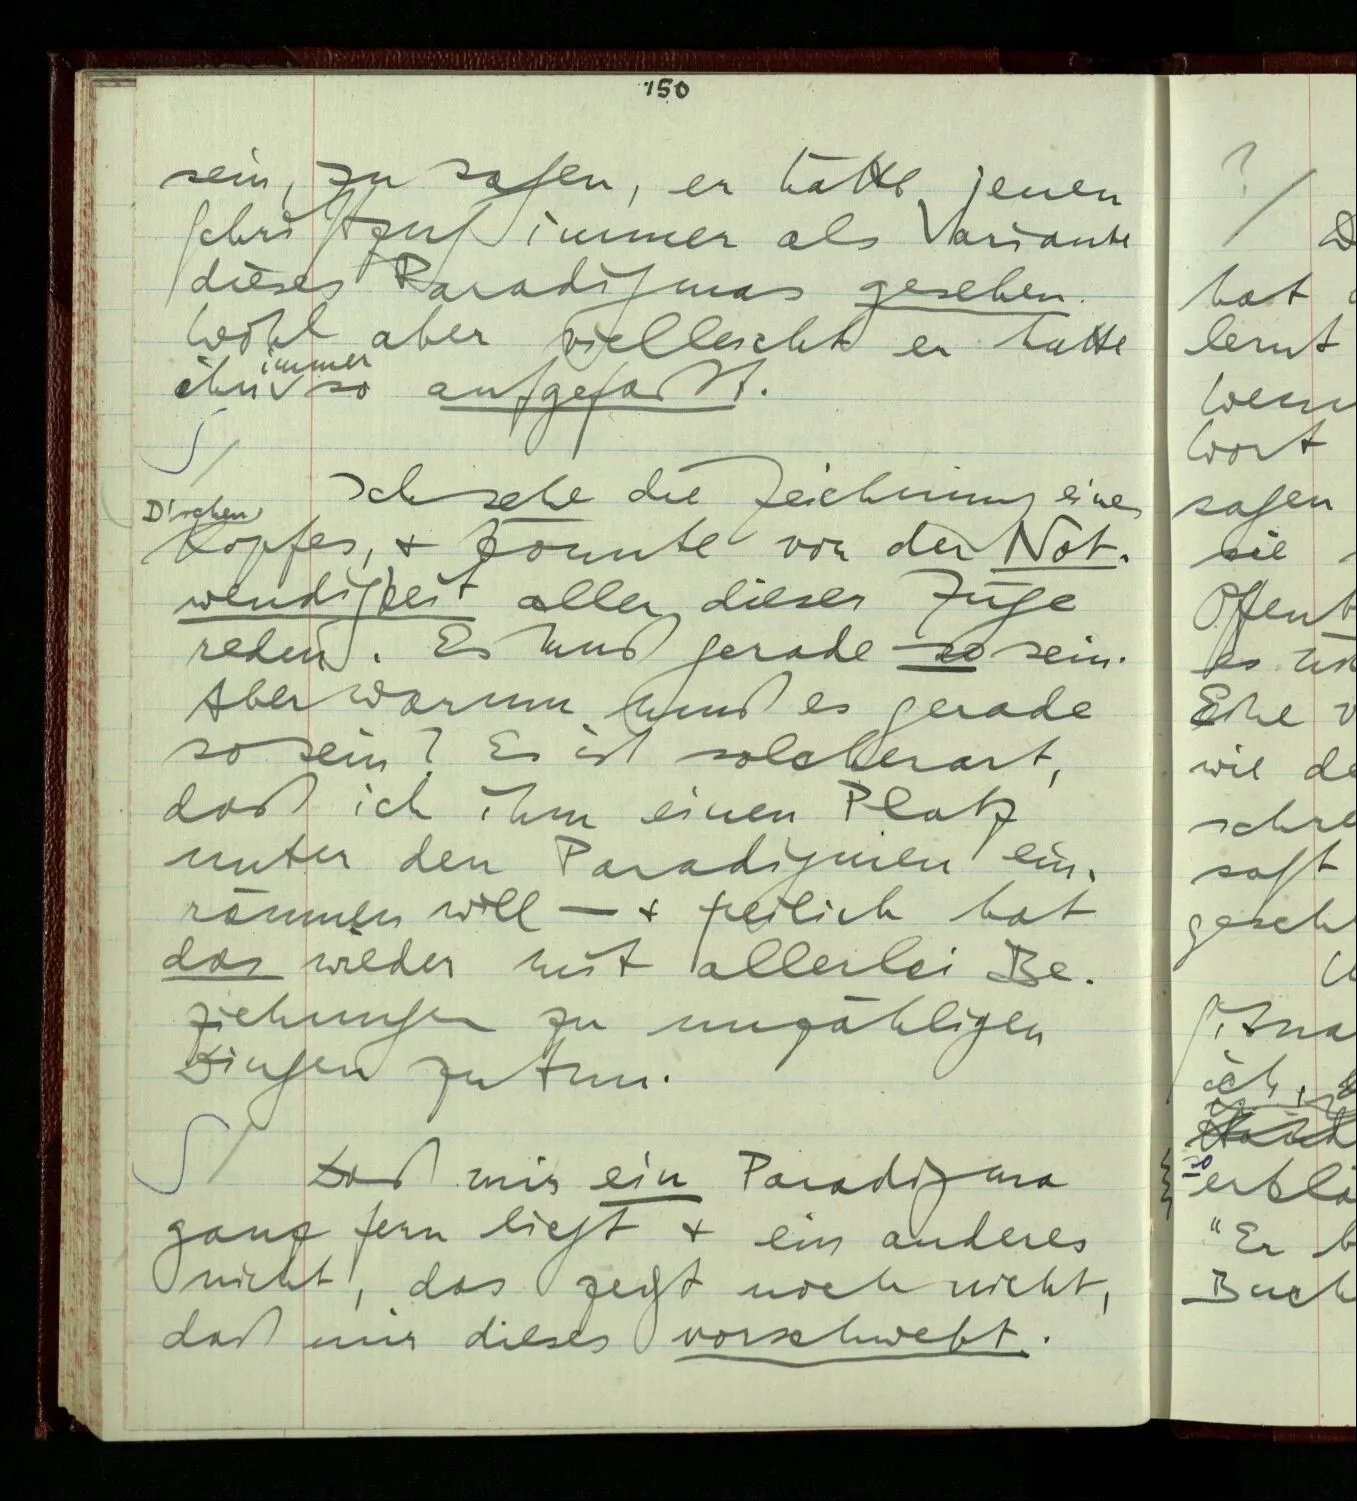 150
sein, zu sagen, er hätte jenen
Schriftzug immer als Variante
dieses Paradigmas gesehen.
Wohl aber vielleicht er hatte
ihn immer so aufgefaßt.
S /
Ich sehe die Zeichnung eines
D'schen
Kopfes, & könnte von der Not-
wendigkeit aller dieser Züge
reden. Es muß gerade so sein.
Aber warum muß es gerade
so sein? Es ist solcherart,
daß ich ihm einen Platz
unter den Paradigmen ein-
räumen will — & freilich hat
das wieder mit allerlei Be-
ziehungen zu unzähligen
Dingen zu tun.
S /
Daß mir ein Paradigma
ganz fern liegt & ein anderes
nicht, das zeigt noch nicht,
daß mir dieses vorschwebt.
? /
D
hat
lernt
wenn
Wort
sagen
sie
Offenb
es
Ehe v
wie de
schre
saft
gesch
ich,
so
erklä
"Er b
Buch